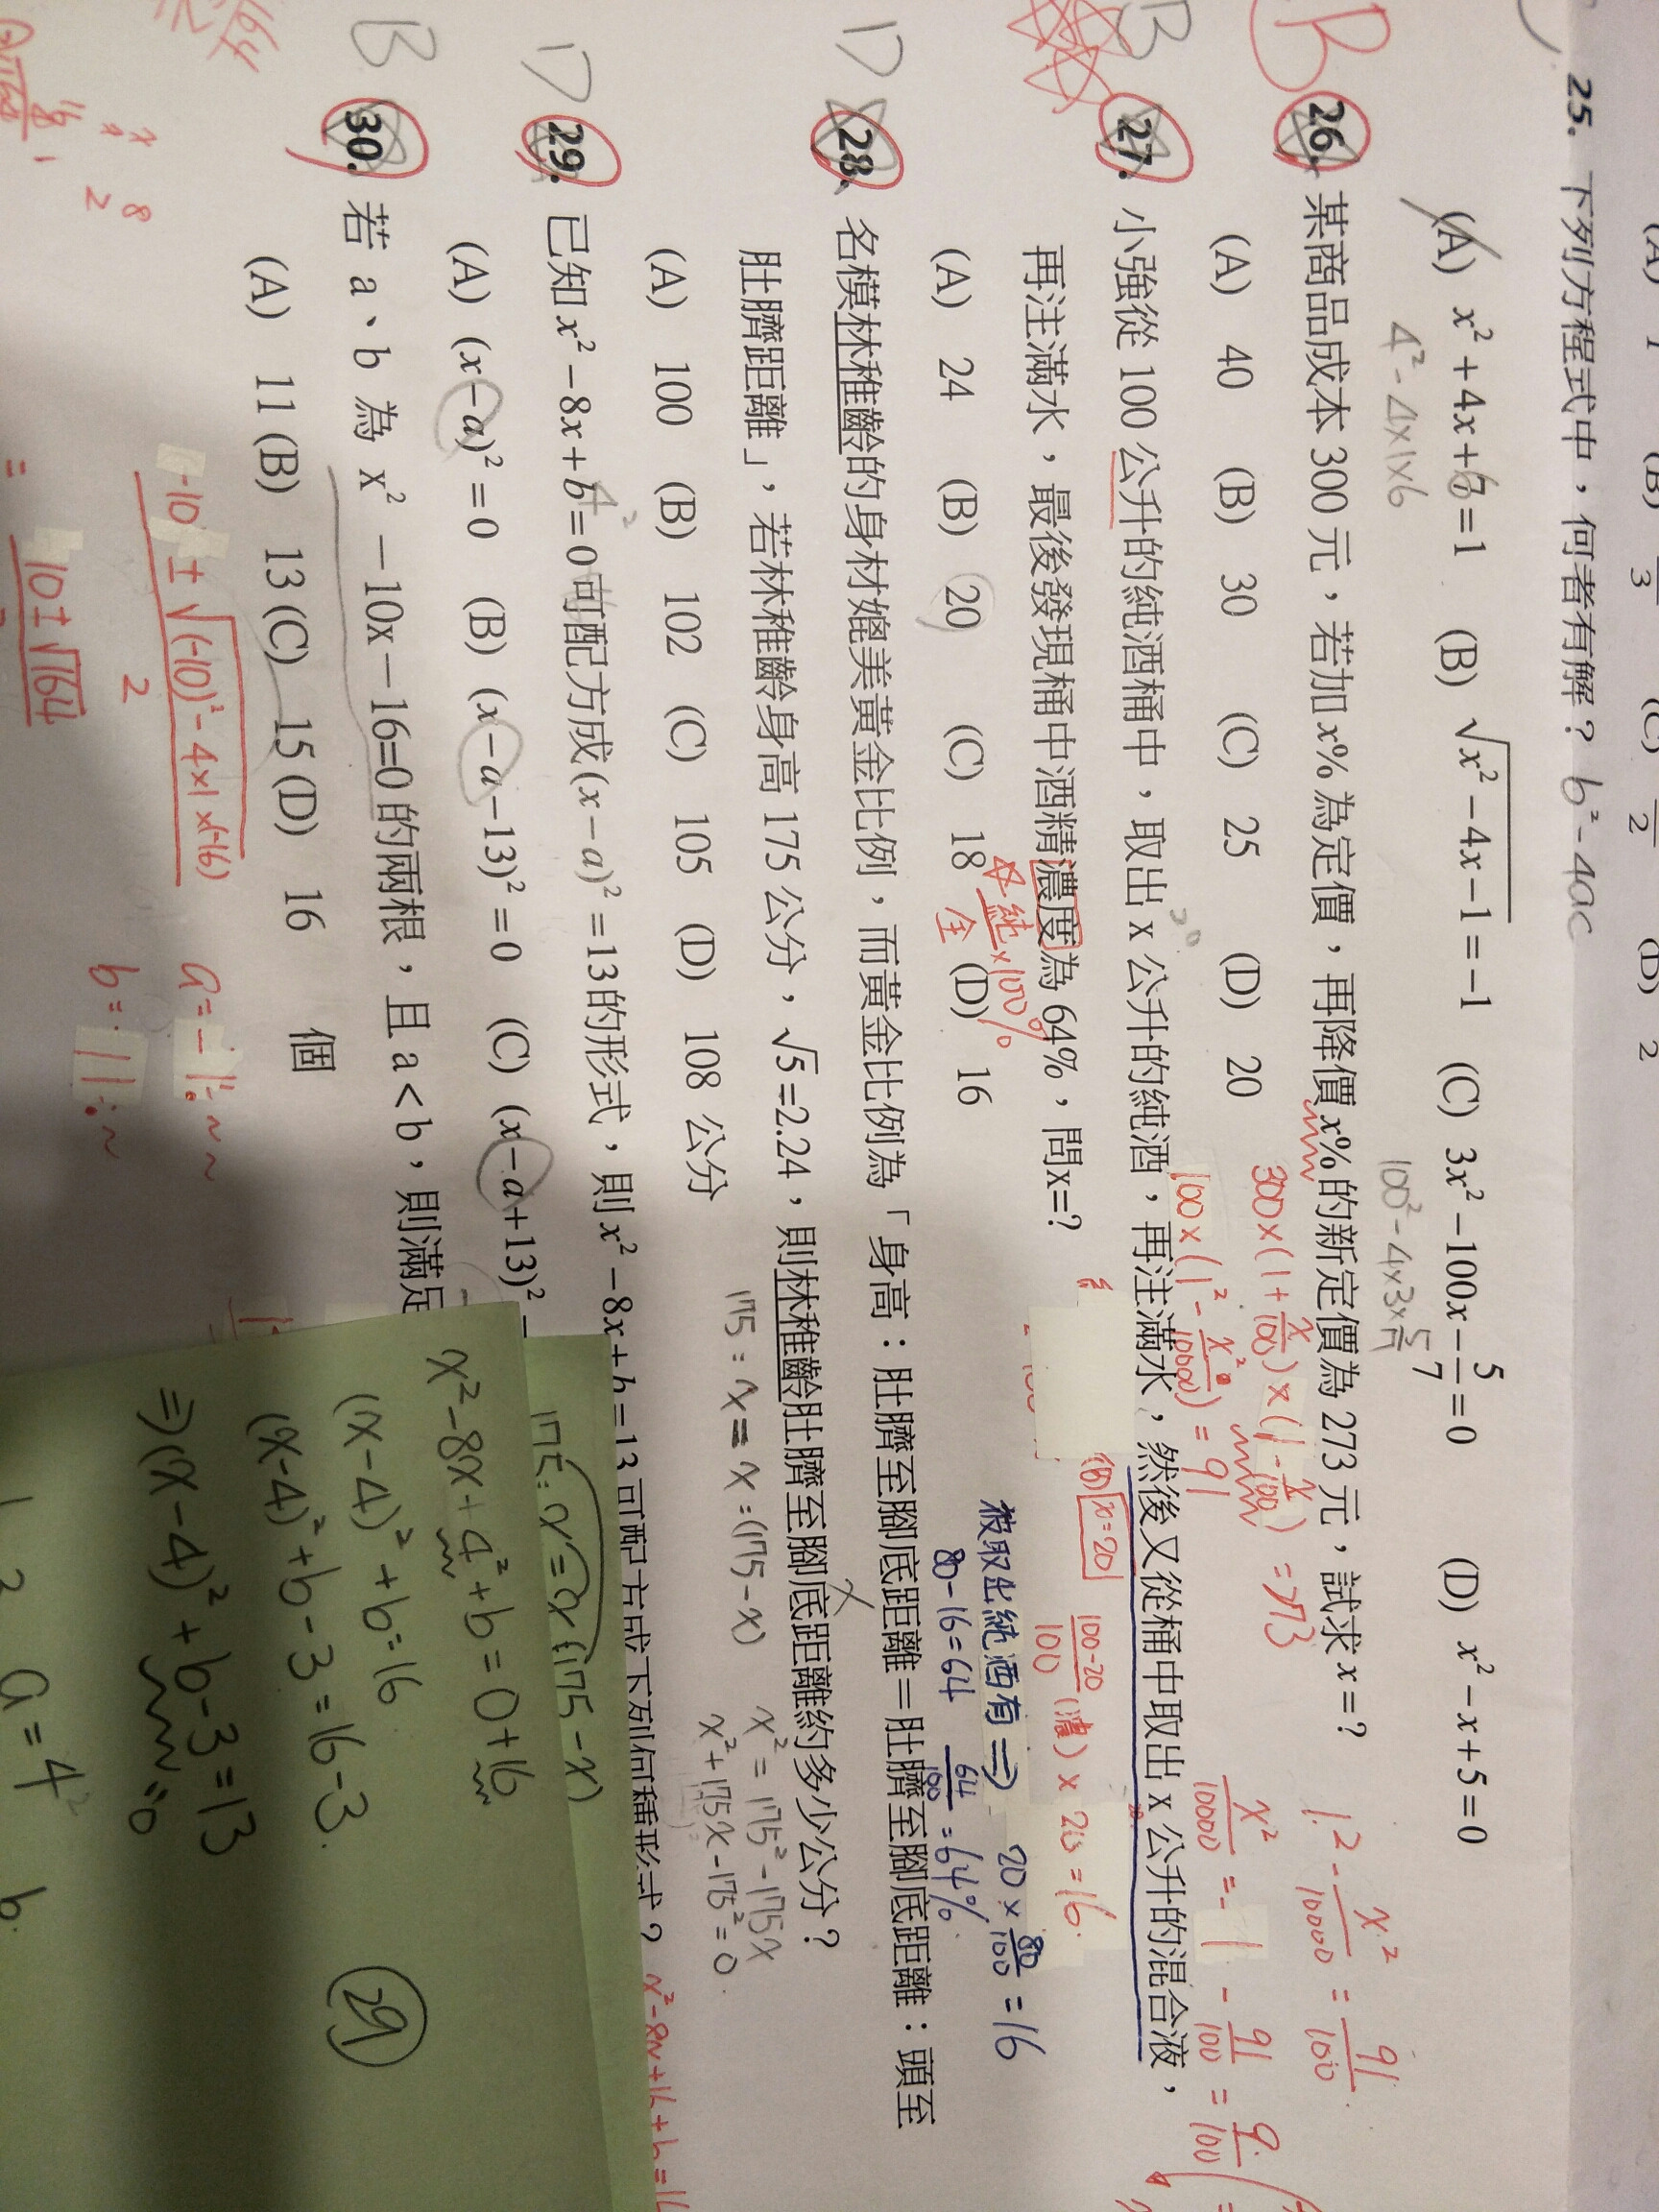 (A) 1 (B) 3 (C) 2 (D) 2
25. 下列方程式中，何者有解？ b²-4ac
(A) x²+4x+7=1 (B) √(x²-4x-1)=-1 (C) 3x²-100x-5/7=0 (D) x²-x+5=0
4²-4×1×6
100²-4×3×5/7
B 26. 某商品成本 300 元，若加 x% 為定價，再降價 x% 的新定價為 273 元，試求 x=？
(A) 40 (B) 30 (C) 25 (D) 20
300×(1+x/100)×(1-x/100)=273
1²-x²/10000=91/100
100×(1²-x²/10000)=91
x²/10000=1-91/100=9/100
B 27. 小強從 100 公升的純酒桶中，取出 x 公升的純酒，再注滿水，然後又從桶中取出 x 公升的混合液，
再注滿水，最後發現桶中酒精濃度為 64%，問x=?
(A) 24 (B) 20 (C) 18 (D) 16
純/全×100%
(B) x=20
100-20/100 (濃)×20=16
被取出純酒有⇒ 20×80/100=16
80-16=64 64/100=64%
D 28. 名模林稚齡的身材媲美黃金比例，而黃金比例為「身高：肚臍至腳底距離＝肚臍至腳底距離：頭至
肚臍距離」，若林稚齡身高 175 公分，√5=2.24，則林稚齡肚臍至腳底距離約多少公分？
(A) 100 (B) 102 (C) 105 (D) 108 公分
175:x=x:(175-x)
x²=175²-175x
x²+175x-175²=0
D 29. 已知 x²-8x+b=0可配方成(x-a)²=13的形式，則 x²-8x+b=13可配方成下列何種形式？
(A) (x-a)²=0 (B) (x-a-13)²=0 (C) (x-a+13)²
B 30. 若 a、b 為 x²-10x-16=0的兩根，且 a<b，則滿足
(A) 11 (B) 13 (C) 15 (D) 16 個
-10±√((-10)²-4×1×(-16))
2
=
10±√164
a=-1.~~
b=11.~
175:x=x:(175-x)
x²-8x+4²+b=0+16
(x-4)²+b=16
(x-4)²+b-3=16-3.
⇒(x-4)²+b-3=13
29
a=4
b